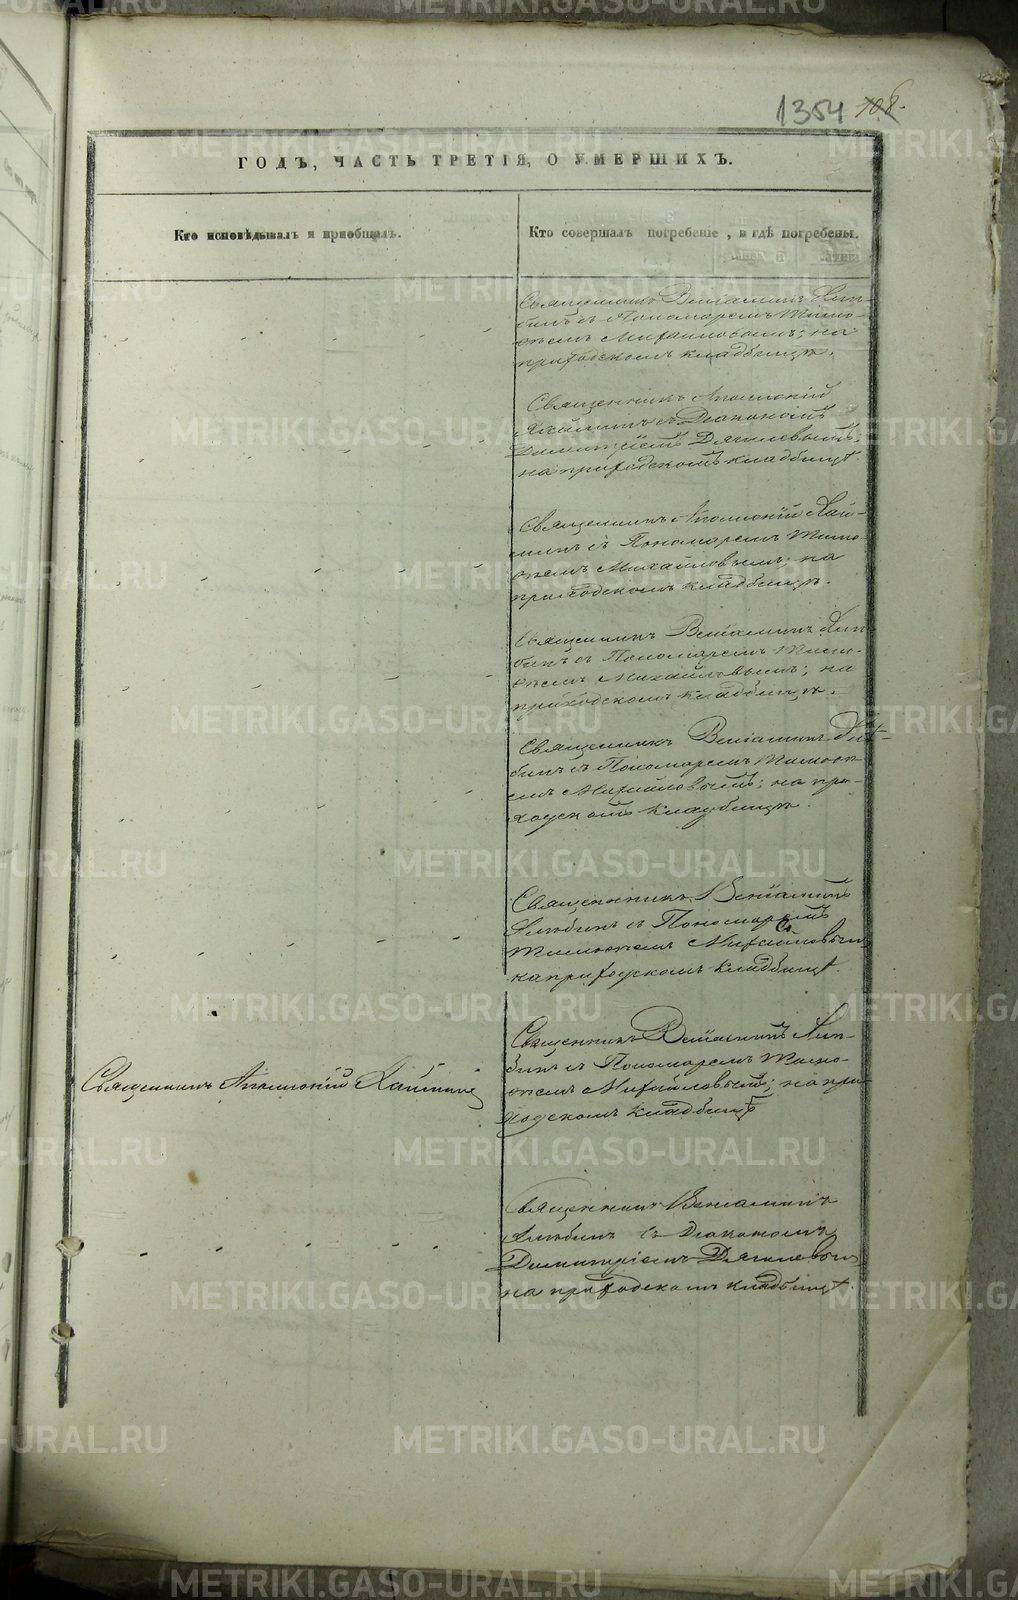 1354 108.
ГОДЪ, ЧАСТЬ ТРЕТІЯ, О УМЕРШИХЪ.
Кто исповѣдывалъ и пріобщалъ.
Кто совершалъ погребеніе, и гдѣ погребены.
Священникъ Веніаминъ
съ Пономаремъ Тимо-
ѳеемъ Михайловымъ; на
приходскомъ кладбищѣ.
Священникъ Аполлоній
съ Діакономъ
Димитріемъ Дягилевымъ,
на приходскомъ кладбищѣ.
Священникъ Аполлоній
съ Пономаремъ Тимо-
ѳеемъ Михайловымъ; на
приходскомъ кладбищѣ.
Священникъ Веніаминъ
съ Пономаремъ Тимо-
ѳеемъ Михайловымъ; на
приходскомъ кладбищѣ.
Священникъ Веніаминъ
съ Пономаремъ Тимоѳе-
емъ Михайловымъ; на при-
ходскомъ кладбищѣ.
Священникъ Веніаминъ
съ Пономаремъ
Тимоѳеемъ Михайловымъ
на приходскомъ кладбищѣ.
Священникъ Аполлоній
Священникъ Веніаминъ
съ Пономаремъ Тимо-
ѳеемъ Михайловымъ; на при-
ходскомъ кладбищѣ
Священникъ Веніаминъ
съ Діакономъ
Димитріемъ Дягилевымъ
на приходскомъ кладбищѣ.
METRIKI.GASO-URAL.RU